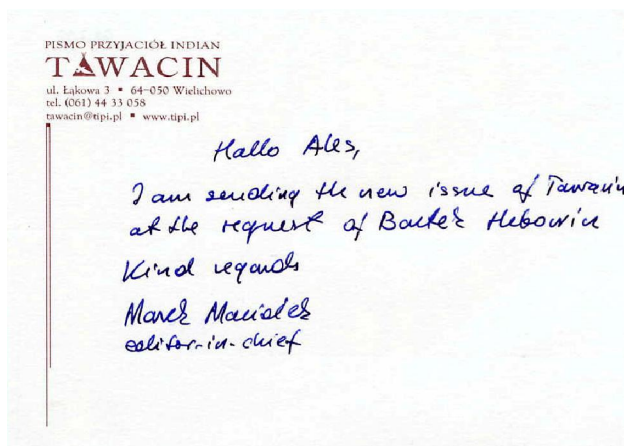 PISMO PRZYJACIÓŁ INDIAN
TAWACIN
ul. Łąkowa 3 ▪ 64-050 Wielichowo
tel. (061) 44 33 058
tawacin@tipi.pl ▪ www.tipi.pl
Hallo Ales,
I am sending the new issue of Tawacin
at the request of
Kind regards
Marek Maciołek
editor-in-chief